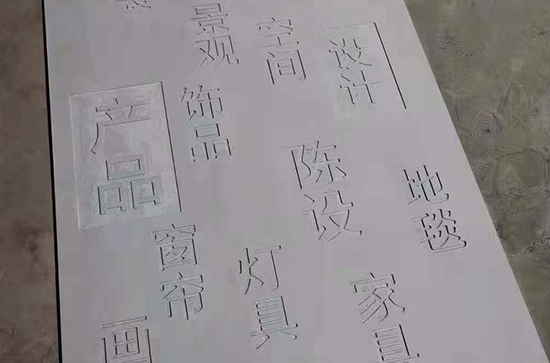 景观
空间
设计
产品
饰品
陈设
地毯
窗帘
灯具
家具
画